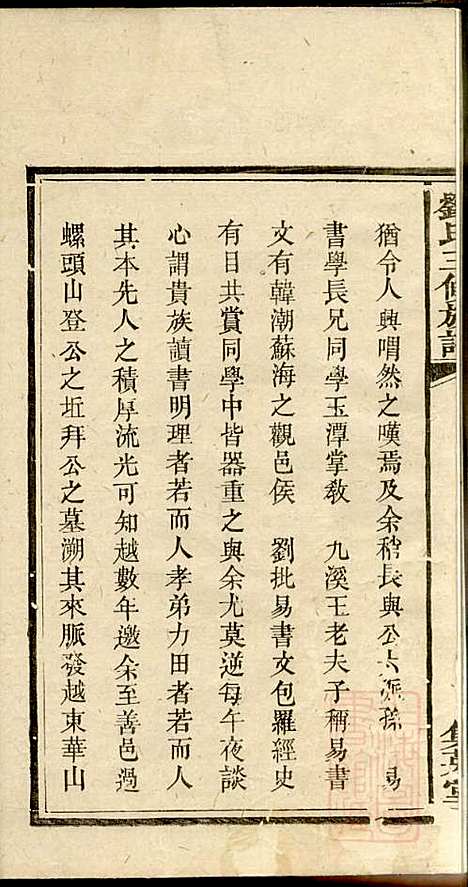 劉氏三修族譜
猶令人興喟然之嘆焉及余稍長與公六派孫　易
書學長兄同學玉潭掌敎　九溪王老夫子稱易書
文有韓潮蘇海之觀邑侯　劉批易書文包羅經史
有目共賞同學中皆器重之與余尤莫逆每午夜談
心謂貴族讀書明理者若而人孝弟力田者若而人
其本先人之積厚流光可知越數年邀余至善邑過
螺頭山登公之坵拜公之墓溯其來脈發越東華山